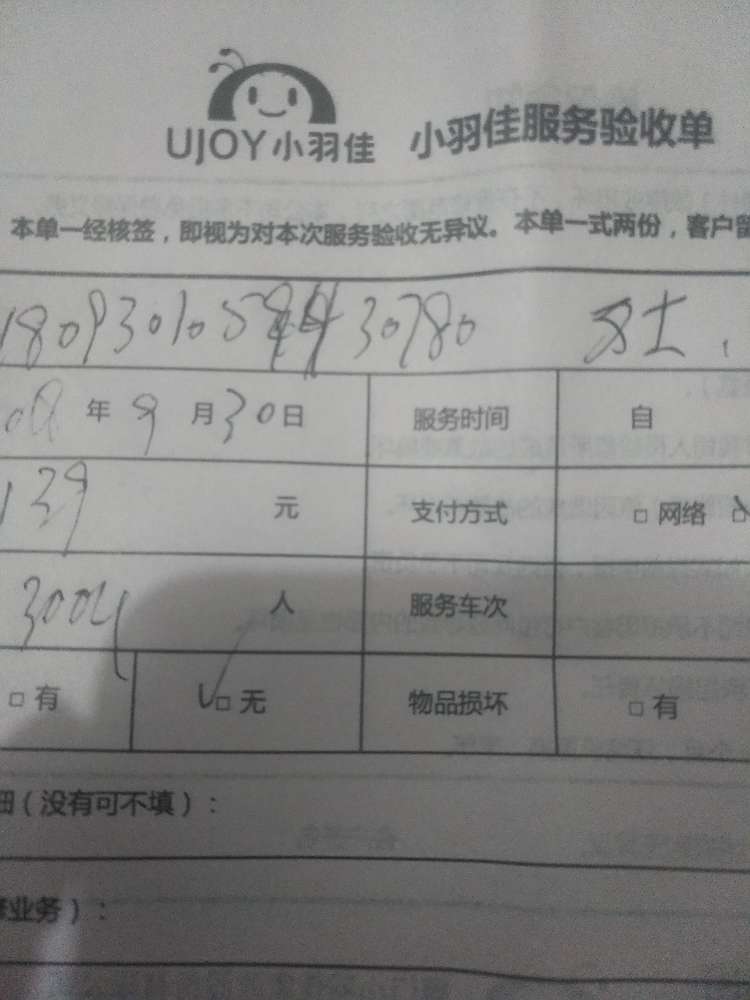 UJOY小羽佳 小羽佳服务验收单
本单一经核签，即视为对本次服务验收无异议。本单一式两份，客户留
30780
年 9 月 30 日 服务时间 自
139 元 支付方式 □ 网络 □
3004 人 服务车次
□ 有 □ 无 物品损坏 □ 有
（没有可不填）：
业务）：